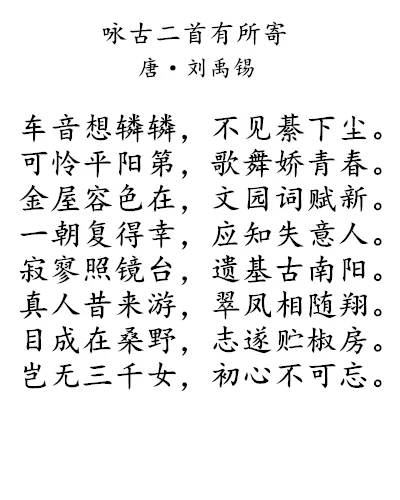 咏古二首有所寄
唐·刘禹锡
车音想辚辚，不见綦下尘。
可怜平阳第，歌舞娇青春。
金屋容色在，文园词赋新。
一朝复得幸，应知失意人。
寂寥照镜台，遗基古南阳。
真人昔来游，翠凤相随翔。
目成在桑野，志遂贮椒房。
岂无三千女，初心不可忘。